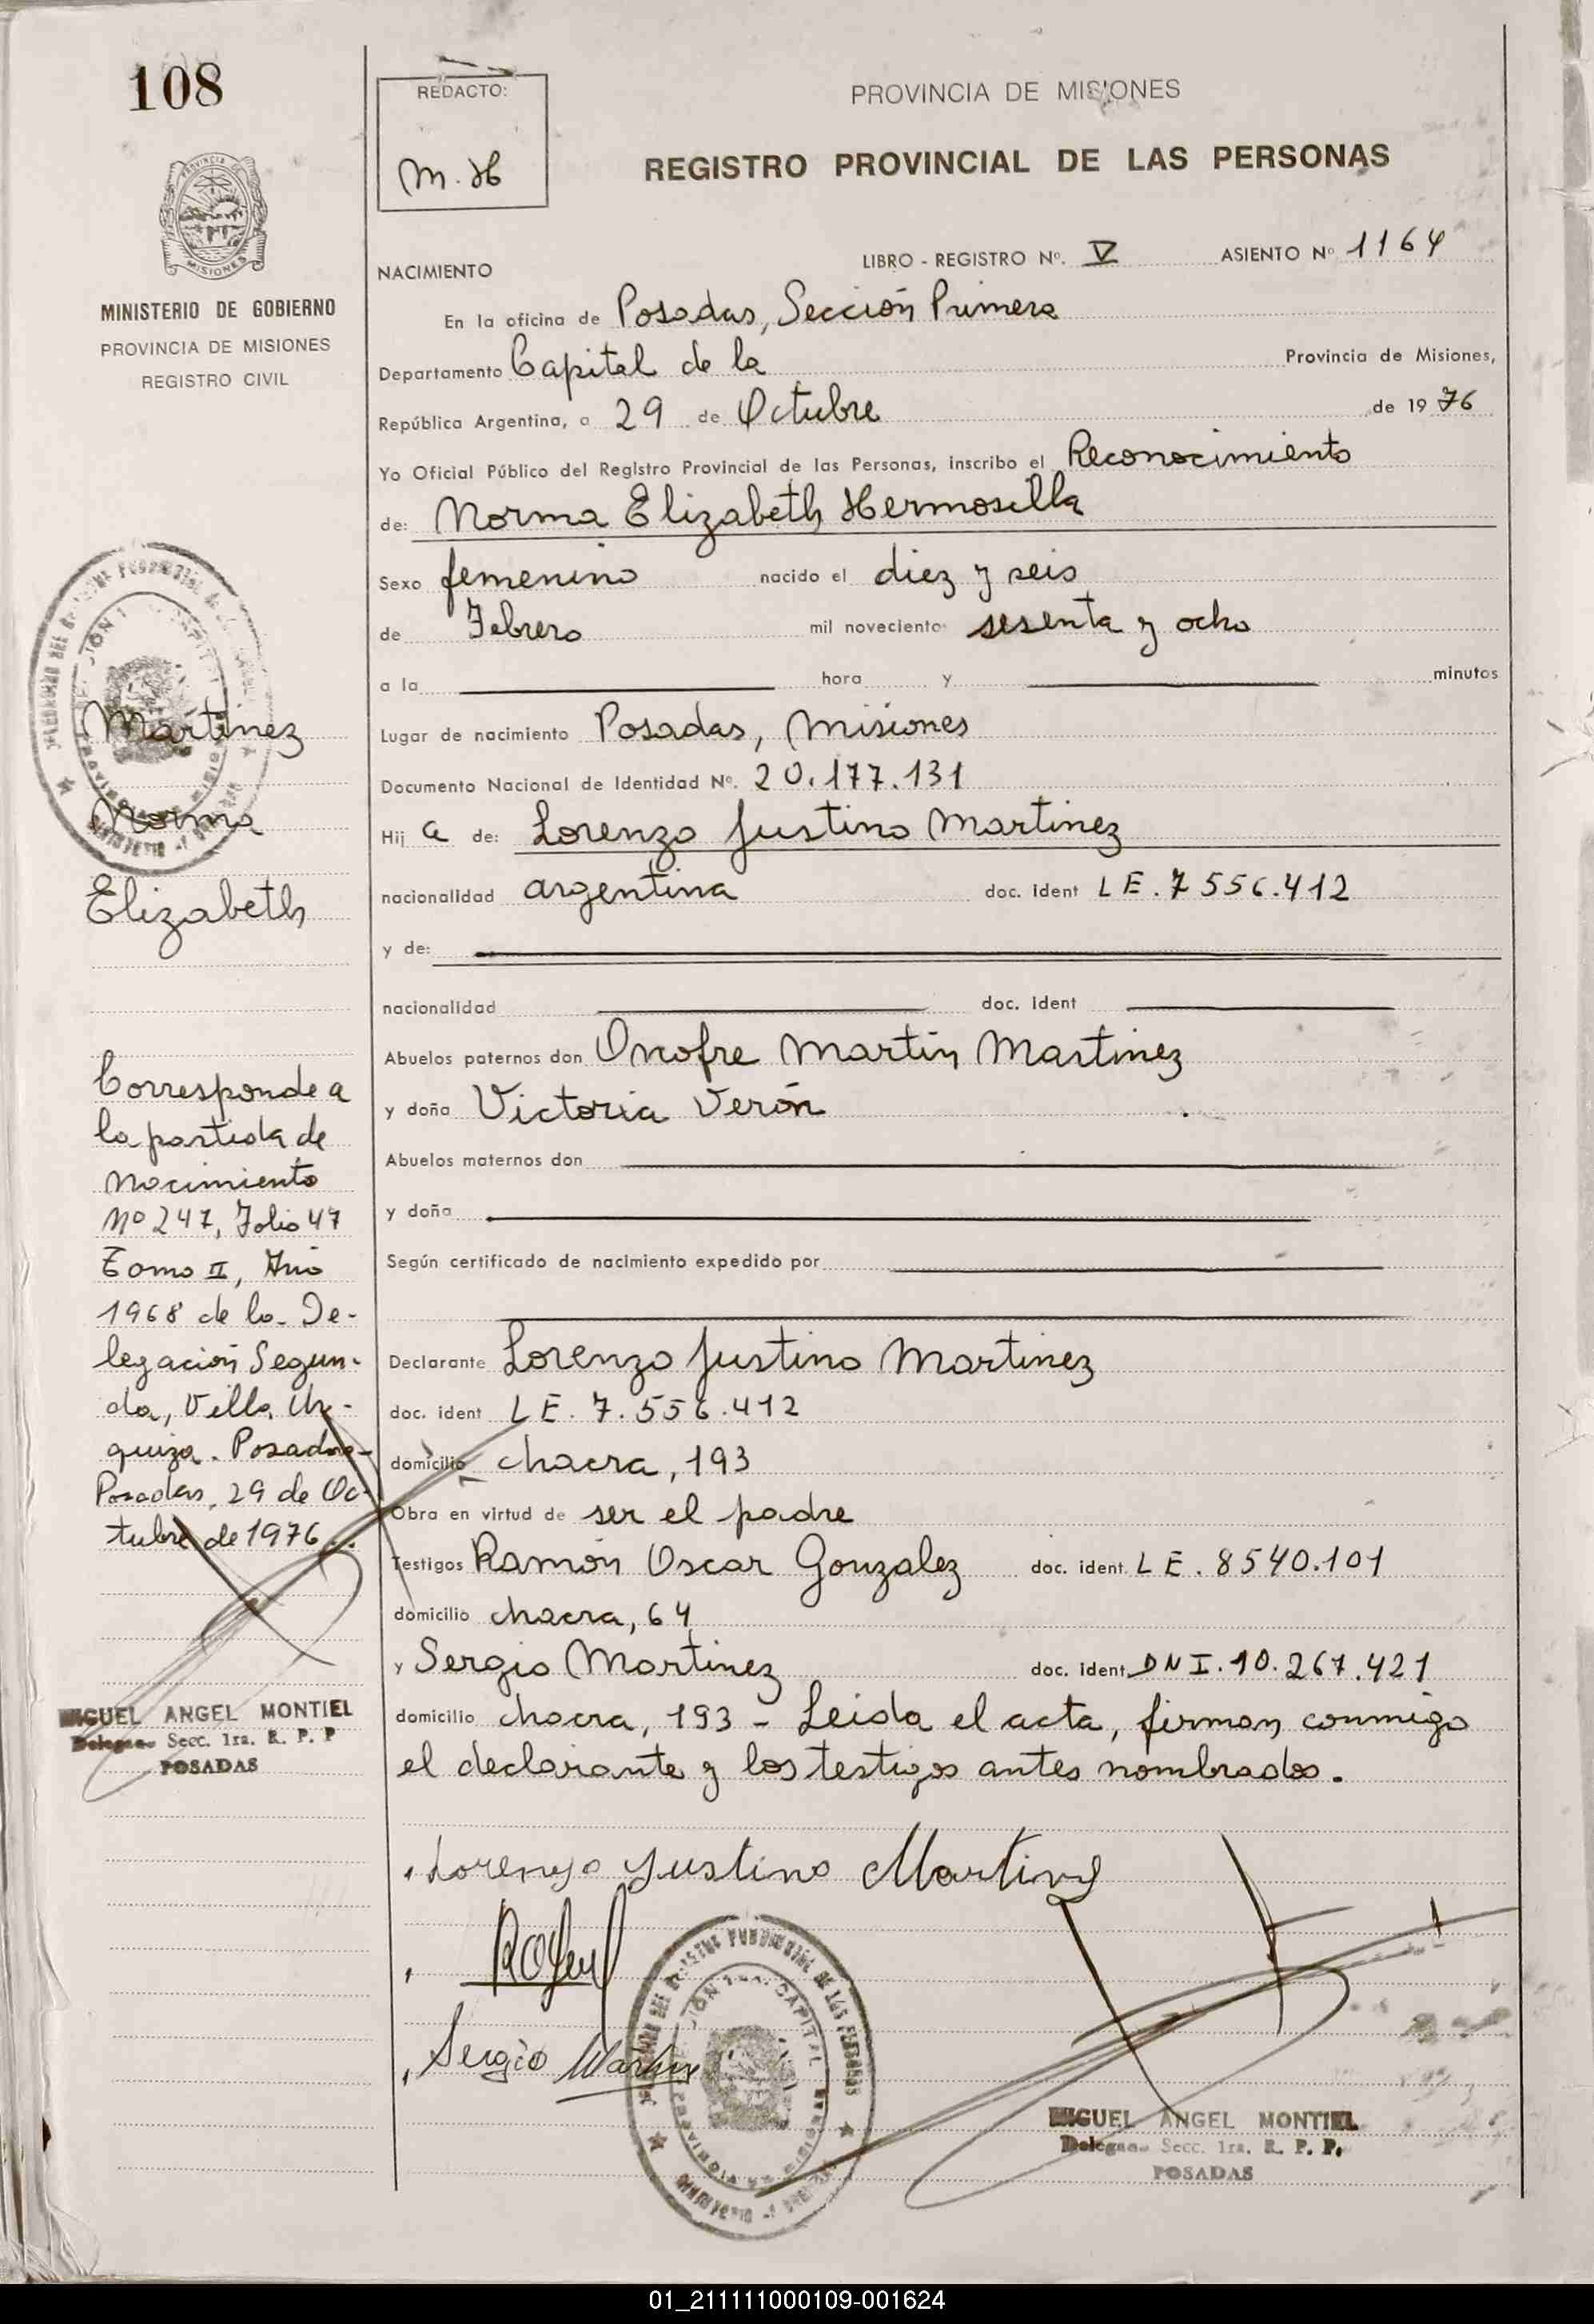 108
REDACTO:
M. H
PROVINCIA DE MISIONES
REGISTRO PROVINCIAL DE LAS PERSONAS
MINISTERIO DE GOBIERNO
PROVINCIA DE MISIONES
REGISTRO CIVIL
NACIMIENTO LIBRO - REGISTRO Nº. V ASIENTO Nº 1164
En la oficina de Posadas, Sección Primera
Departamento Capital de la Provincia de Misiones,
República Argentina, a 29 de Octubre de 1976
Yo Oficial Público del Registro Provincial de las Personas, inscribo el Reconocimiento
de: Norma Elizabeth Hermosilla
Sexo femenino nacido el diez y seis
de Febrero mil noveciento sesenta y ocho
a la hora y minutos
Lugar de nacimiento Posadas, Misiones
Documento Nacional de Identidad Nº. 20.177.131
Hij a de: Lorenzo Justino Martinez
nacionalidad argentina doc. ident LE. 7 556.412
y de:
nacionalidad doc. ident
Abuelos paternos don Onofre Martín Martinez
y doña Victoria Verón
Abuelos maternos don
y doña
Según certificado de nacimiento expedido por
Declarante Lorenzo Justino Martinez
doc. ident LE. 7.556.412
domicilio chacra, 193
Obra en virtud de ser el padre
Testigos Ramón Oscar Gonzalez doc. ident. LE. 8540.101
domicilio chacra, 64
y Sergio Martinez doc. ident. DNI. 10.267.421
domicilio chacra, 193 - Leida el acta, firman conmigo
el declarante y los testigos antes nombrados.
Martinez
Norma
Elizabeth
Corresponde a
la partida de
Nacimiento
Nº 247, Folio 47
Tomo II, Año
1968 de la De-
legación Segun-
da, Villa Ur-
quiza. Posadas-
Posadas, 29 de Oc-
tubre de 1976..
MIGUEL ANGEL MONTIEL
Delegado Secc. 1ra. R. P. P
POSADAS
Lorenzo Justino Martinez
Sergio Martinez
MIGUEL ANGEL MONTIEL
Delegado Secc. 1ra. R. P. P.
POSADAS
01_211111000109-001624